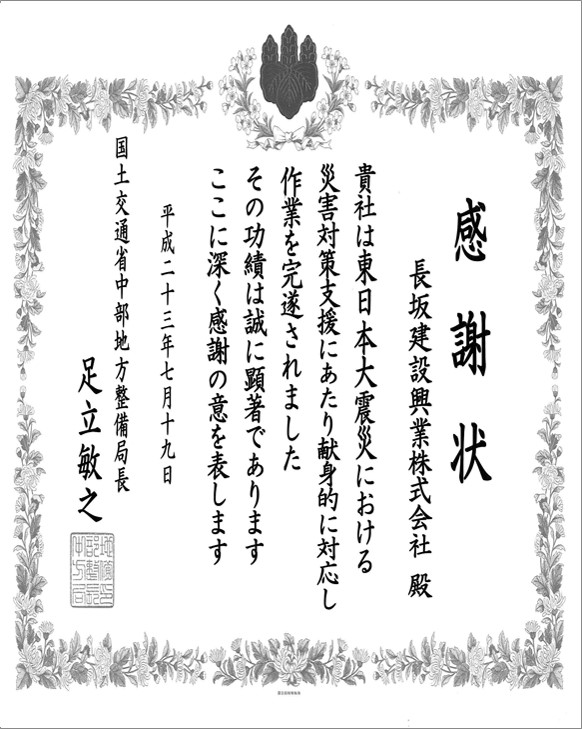 感謝状
長坂建設興業株式会社 殿
貴社は東日本大震災における
災害対策支援にあたり献身的に対応し
作業を完遂されました
その功績は誠に顕著であります
ここに深く感謝の意を表します
平成二十三年七月十九日
国土交通省中部地方整備局長
足立敏之